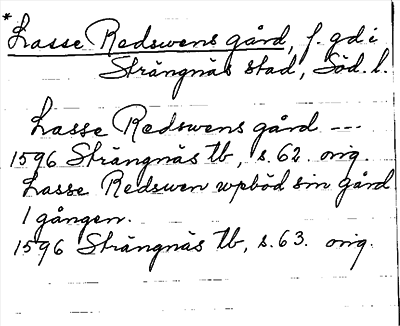 * Lasse Redswens gård, f. gd i
Strängnäs stad, Söd. l.
Lasse Redswens gård ---
1596 Strängnäs tb, s. 62. orig.
Lasse Redswen wpböd sin gård
1 gången.
1596 Strängnäs tb, s. 63. orig.